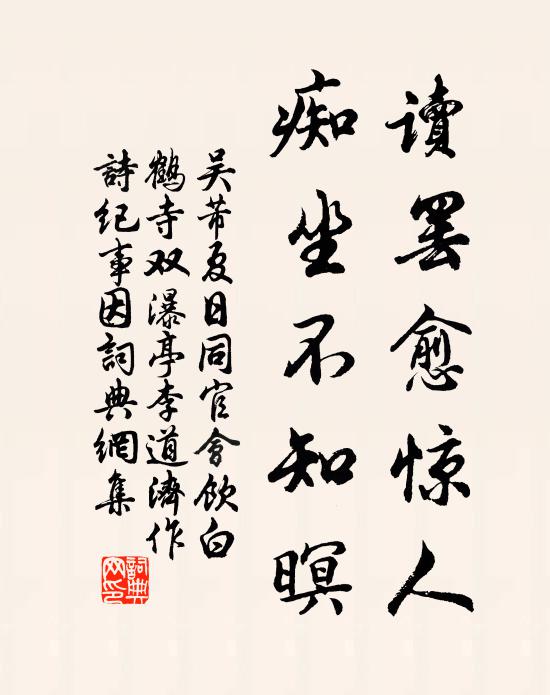 讀罢愈惊人
痴坐不知暝
吴芾夏日同官會飲白
鶴寺双瀑亭李道濟作
詩紀事因詞典網集
詞典网印